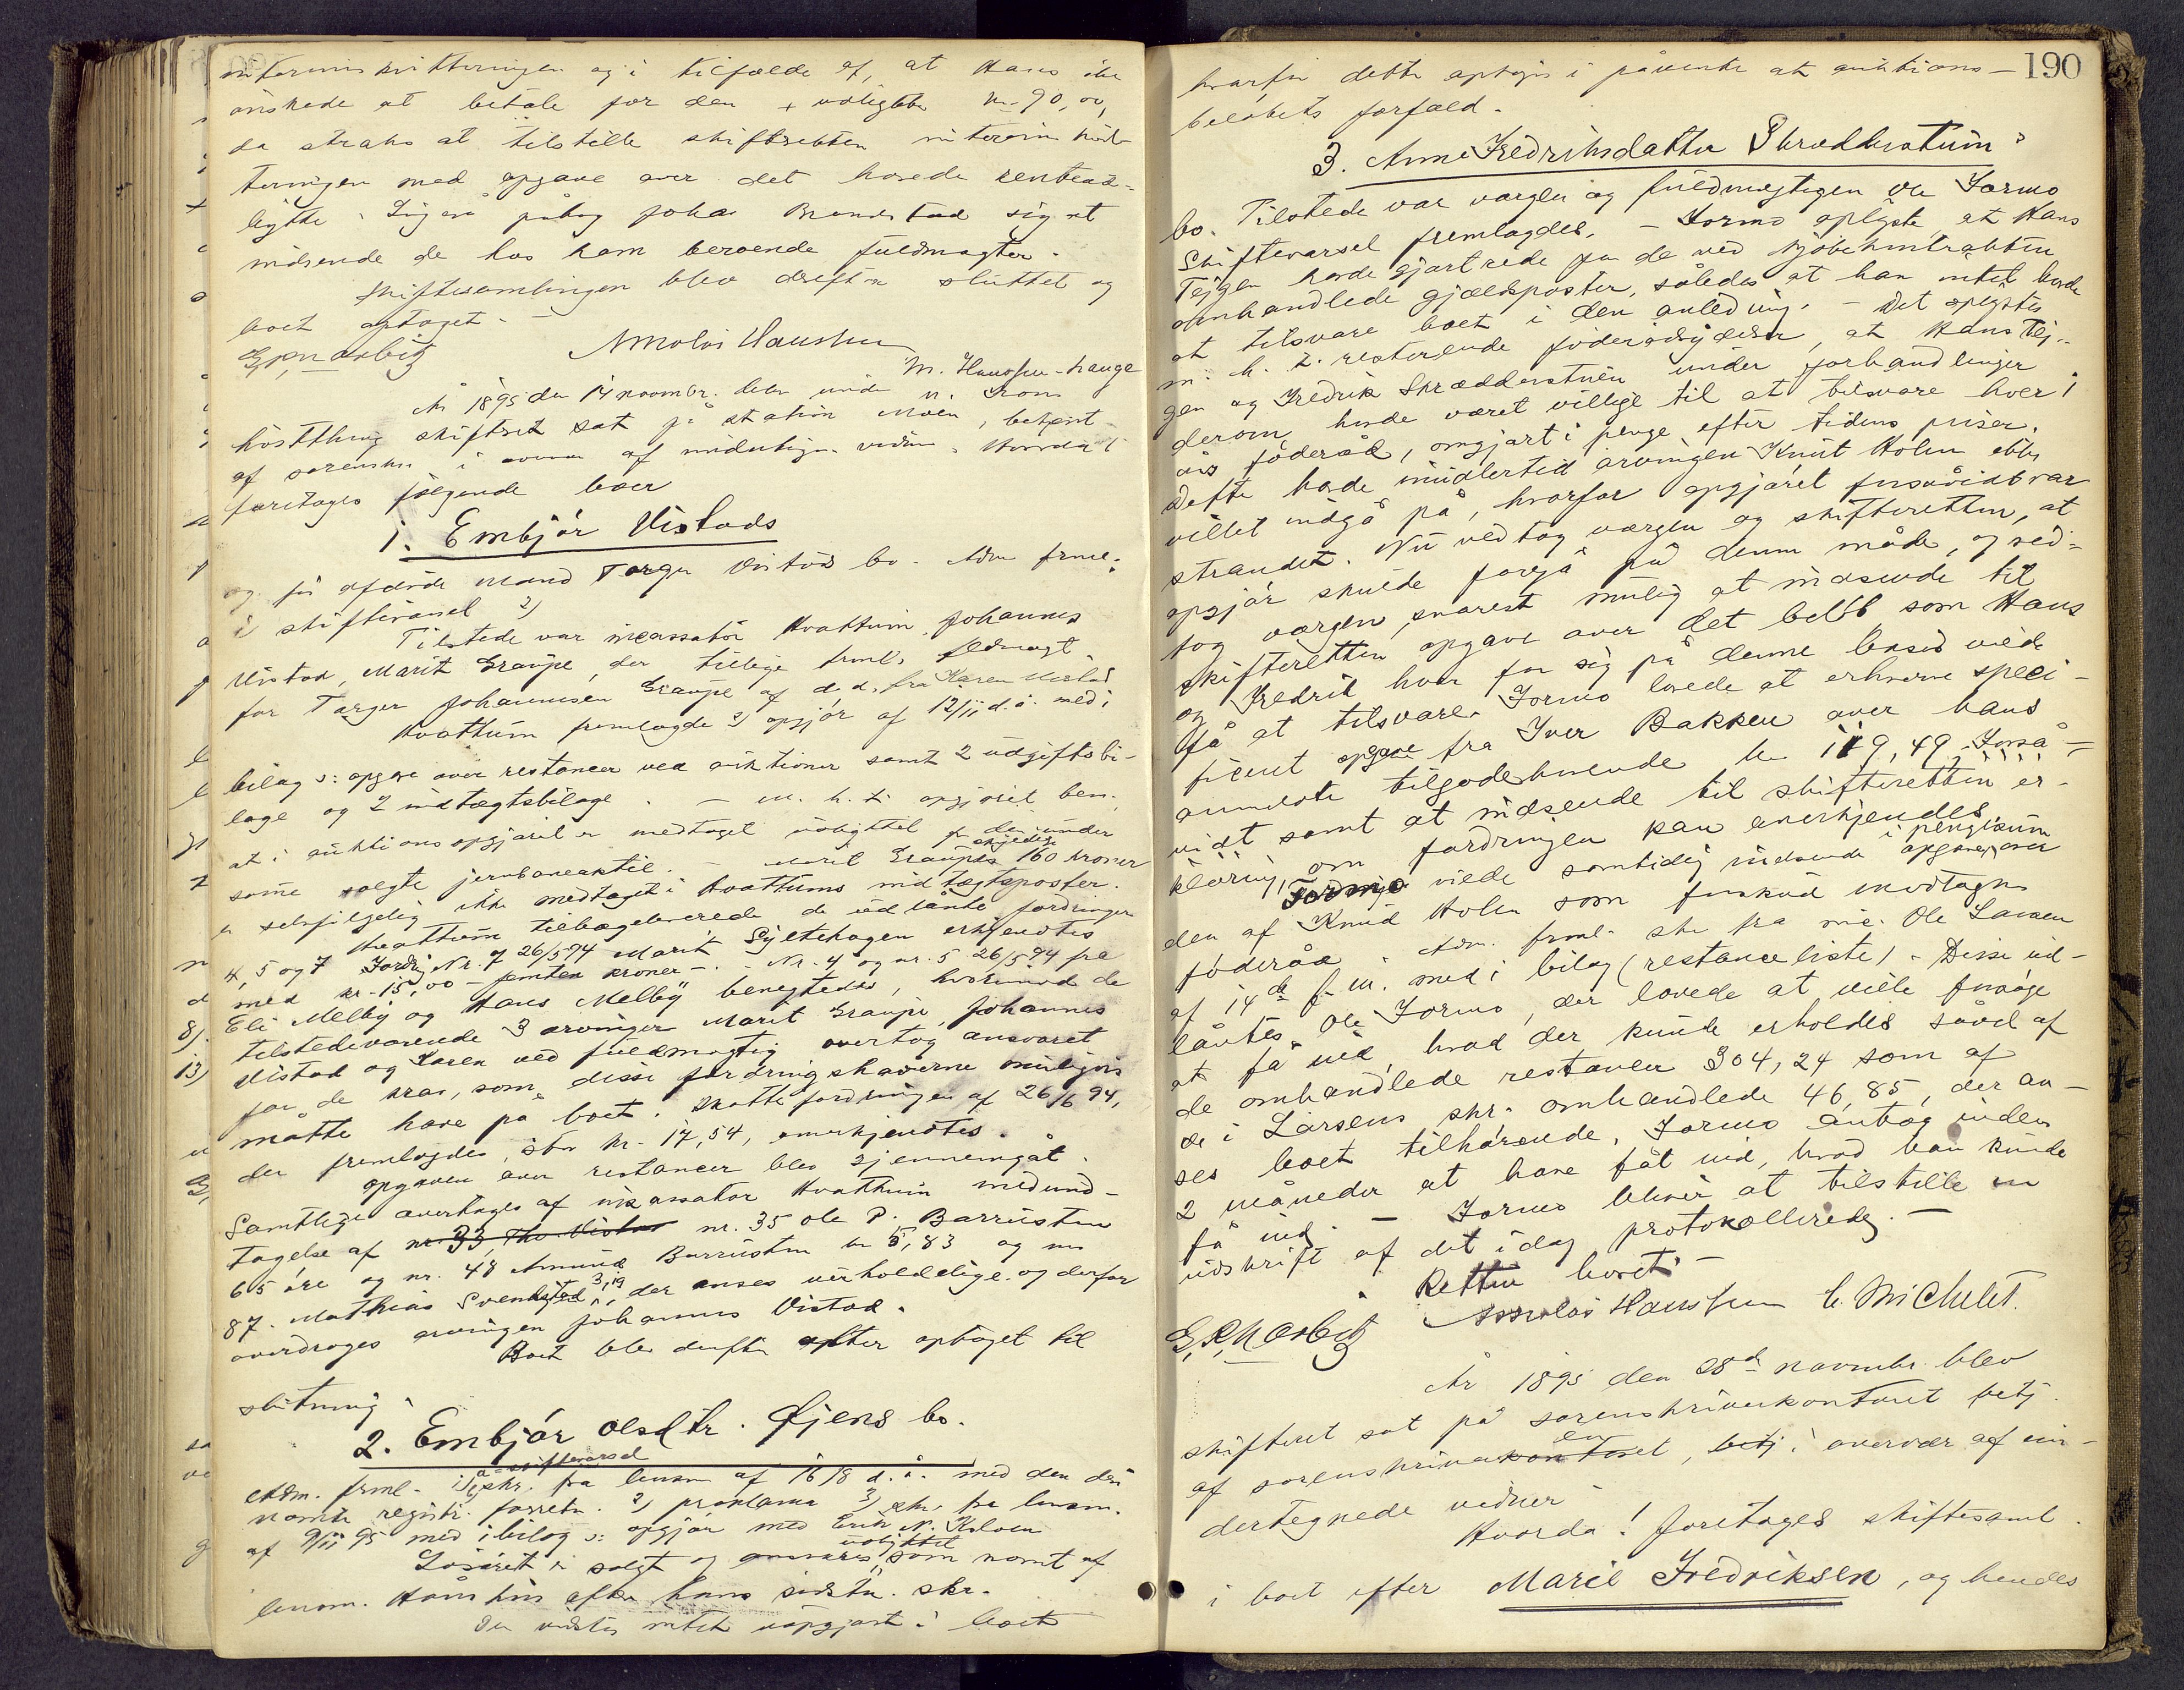 interimskvitteringen og i tilfælde af, at Hans ikke
ønskede at betale for den + udligtede kr. 90,00,
da straks at tilstille skifteretten interimskvit-
teringen med opgave over det havede renteud-
ligtte. Ligeså påtog Johan Brandstad sig at
indsende de hos ham beroende fuldmagter.
Skiftesamlingen blev derefter sluttet og
boet optaget. -
M. Hansen-Hauge
År 1895 den 14 novembr. blev under N. Frons
høstthing skifteret sat på station Moen, betjent
af sorenskr. i overvær af undertegn. vidner. Hvorda!
foretages følgende boer
1. Embjør Vistads
og før afdøde Mand Torger Vistads bo. Adm. frml.
i skiftevarsel 2)
Tilstede var incassator Hvattum, Johannes
Vistad, Marit Graupe, der tillige frml. fldmagt
for Torger Johannesen Graupe af d.d. fra Karen Vistad
Hvattum fremlagde 3) opgjør af 12/11 d.å. med i
bilag s: opgave over restancer ved auktioner samt 2 udgiftsbi-
lage og 2 indtægtsbilage. - m.h.t. opgjøret bem.
at i auktionsopgjøret er medtaget udligttet for den under
samme solgte jernbaneaktie. - Marit Graupes skyldige 160 kroner
er selvfølgelig ikke medtaget i Hvattums indtægtsposter.
Hvattum tilbageleverede de udlånte fordringer
4, 5 og 7 Fordring Nr. 7 26/5 94 Marit Syltehagen erkjendtes
med kr. 15,00 - femten kroner -. - Nr. 4 og nr. 5 26/5 94 fra
Eli Melby og Hans Melby benegtedes, hvorimod de
tilstedeværende 3 arvinger Marit Graupe, Johannes
Vistad og Karen ved fuldmægtig overtog ansvaret
for de krav, som disse fordringshaverne muligens
måtte have på boet. Skattefordringen af 26/6 94,
der fremlagdes, stor kr. 17,54, anerkjendtes.
Opgaven over restancer blev gjennemgåt.
Samtlige overtages af inkassator Hvattum med und-
tagelse af nr. 33, Tho. Vistad nr. 35 Ole P. Barrusten
65 øre og nr. 48 Amund Barrusten kr 5,83 og nr
87. Mathias Svenkstad 3,19, der anses uerholdelige og derfor
overdrages arvingen Johannes Vistad.
Boet blev derefter atter optaget til
slutning.
2. Embjør Olsdtr. Øjens bo.
Adm. frml. 1) a skiftevarsel b skr. fra lensm. af 16/8 d.å. med den deri
nævnte registr. forretn. 2) proklama 3) skr. fra lensm.
af 9/11 95 med i bilag s: opgjør med Erik N. Kolven
Løsøret er solgt og udligttet som nævnt af
lensm. Håmstein efter hans sidste skr.
Der vidstes intet uopgjort i boet
190
hvorfor dette optages i påvente at auktions-
beløbets forfald.
3. Anne Fredriksdatter Skrædderstuens
bo. Tilstede var værgen og fuldmægtigen Ole Formo
Skiftevarsel fremlagdes. - Formo oplyste, at Hans
Tejgen havde gjort rede for de ved kjøbekontrakten
omhandlede gjældsposter, således at han intet havde
at tilsvare boet i den anledning. - Det oplystes
m.h.t. resterende føderådsydelser, at Hans Tej-
gen og Fredrik Skrædderstuen under forhandlinger
derom havde været villige til at tilsvare hver i
sit føderåd, omgjort i penge efter tidens priser.
Dette havde imidlertid arvingen Knut Holen ikke
villet indgå på, hvorfor opgjøret forsåvidt var
strandet. Nu vedtog værgen og skifteretten, at
opgjør skulde foregå på denne måde, og ved-
tog værgen, snarest mulig at indsende til
skifteretten opgave over det beløb som Hans
og Fredrik hver for sig på denne basis vilde
få at tilsvare. Formo lovede at erhverve speci-
ficert opgave fra Iver Bakken over hans
anmeldte tilgodehavende kr 119,49, forså-
vidt samt at indsende til skifteretten er-
klæring, om fordringen kan anerkjendes
Formo vilde samtidig indsende opgave i pengesum over
den af Knud Holen som forskud modtagne
føderåd. Adm. frml. skr. fra inc. Ole Larsen
af 14de f.m. med i bilag (restanceliste). - Disse ud-
låntes Ole Formo, der lovede at ville forsøge
at få ind, hvad der kunde erholdes såvel af
de omhandlede restancer 304,24 som af
de i Larsens skr. omhandlede 46,85, der an-
ses boet tilhørende. Formo antog inden
2 måneder at have fåt ind, hvad han kunde
få ind. - Formo bliver at tilstille en
udskrift af det idag protokollerede. -
Retten hævet. -
C. Michelet.
År 1895 den 28d novembr. blev
skifteret sat på sorenskriverkontoret betj.
af sorenskriverkontoret en, betj. i overvær af un-
dertegnede vidner
Hvorda! foretages skiftesaml.
i boet efter Marie Fredriksen, og hendes